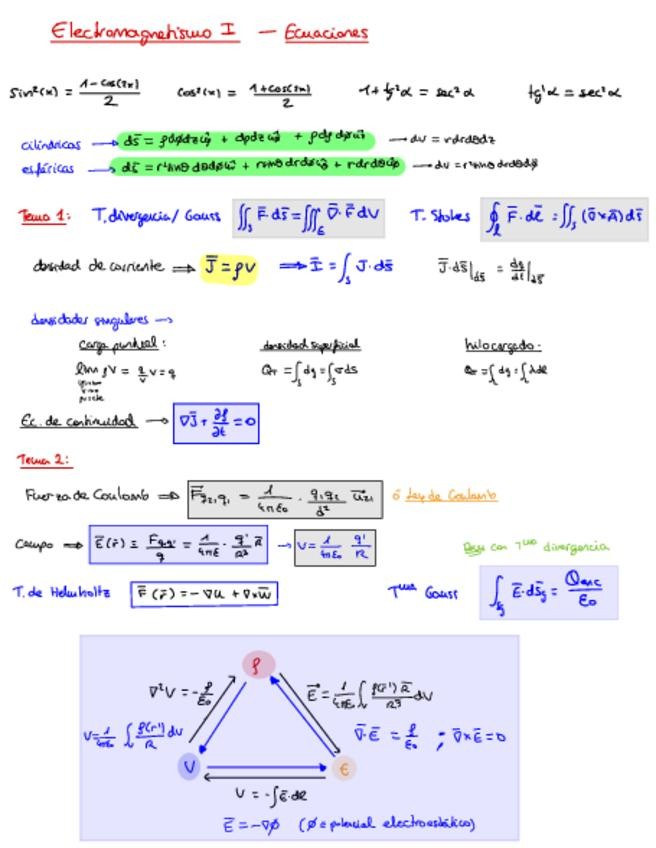 Electromagnetismo I — Ecuaciones
sin²(x) = (1-cos(2x))/2   cos²(x) = (1+cos(2x))/2   1+tg²α = sec²α   tg'α = sec²α
cilíndricas → ds̄ =   — dV = rdrdθdz
esféricas → ds̄ =   — dV = r²sinθ drdθdφ
Tema 1: T. divergencia/Gauss ∬ₛ F̄·ds̄ = ∭ ∇̄·F̄ dV   T. Stokes ∮ₗ F̄·dl̄ = ∬ₛ (∇̄×Ā)ds̄
densidad de corriente ⇒ J̄ = ρv ⇒ Ī = ∫ₛ J·ds̄   J̄·ds̄|ds̄ = dq/dt|ds̄
densidades singulares →
carga puntual:   densidad superficial   hilo cargado:
lim ρV = q/V V = q   Q_T = ∫ₛ dq = ∫ₛ σds   Q_T = ∫ₗ dq = ∫ₗ λdl
Ec. de continuidad → ∇J̄ + ∂ρ/∂t = 0
Tema 2:
Fuerza de Coulomb ⇒ F̄q₂,q₁ = 1/(4πε₀) · q₁q₂/d² u⃗₂₁ ó Ley de Coulomb
Campo ⇒ Ē(r̄) ≡ Fqq'/q = 1/(4πε) · q'/R² R̄ → V = 1/(4πε₀) q'/R
con Tma divergencia
T. de Helmholtz F̄(r̄) = -∇U + ∇×W̄   Tma Gauss ∫ Ē·ds̄ = Qenc/ε₀
ρ
∇²V = -ρ/ε₀   E⃗ = 1/(4πε₀) ∫ᵥ ρ(r')R̄/R³ dV
V = 1/(4πε₀) ∫ᵥ ρ(r')/R dV   ∇̄·Ē = ρ/ε₀ ; ∇̄×Ē = 0
V   E
V = -∫Ē·dl
Ē = -∇φ (φ = potencial electroestático)